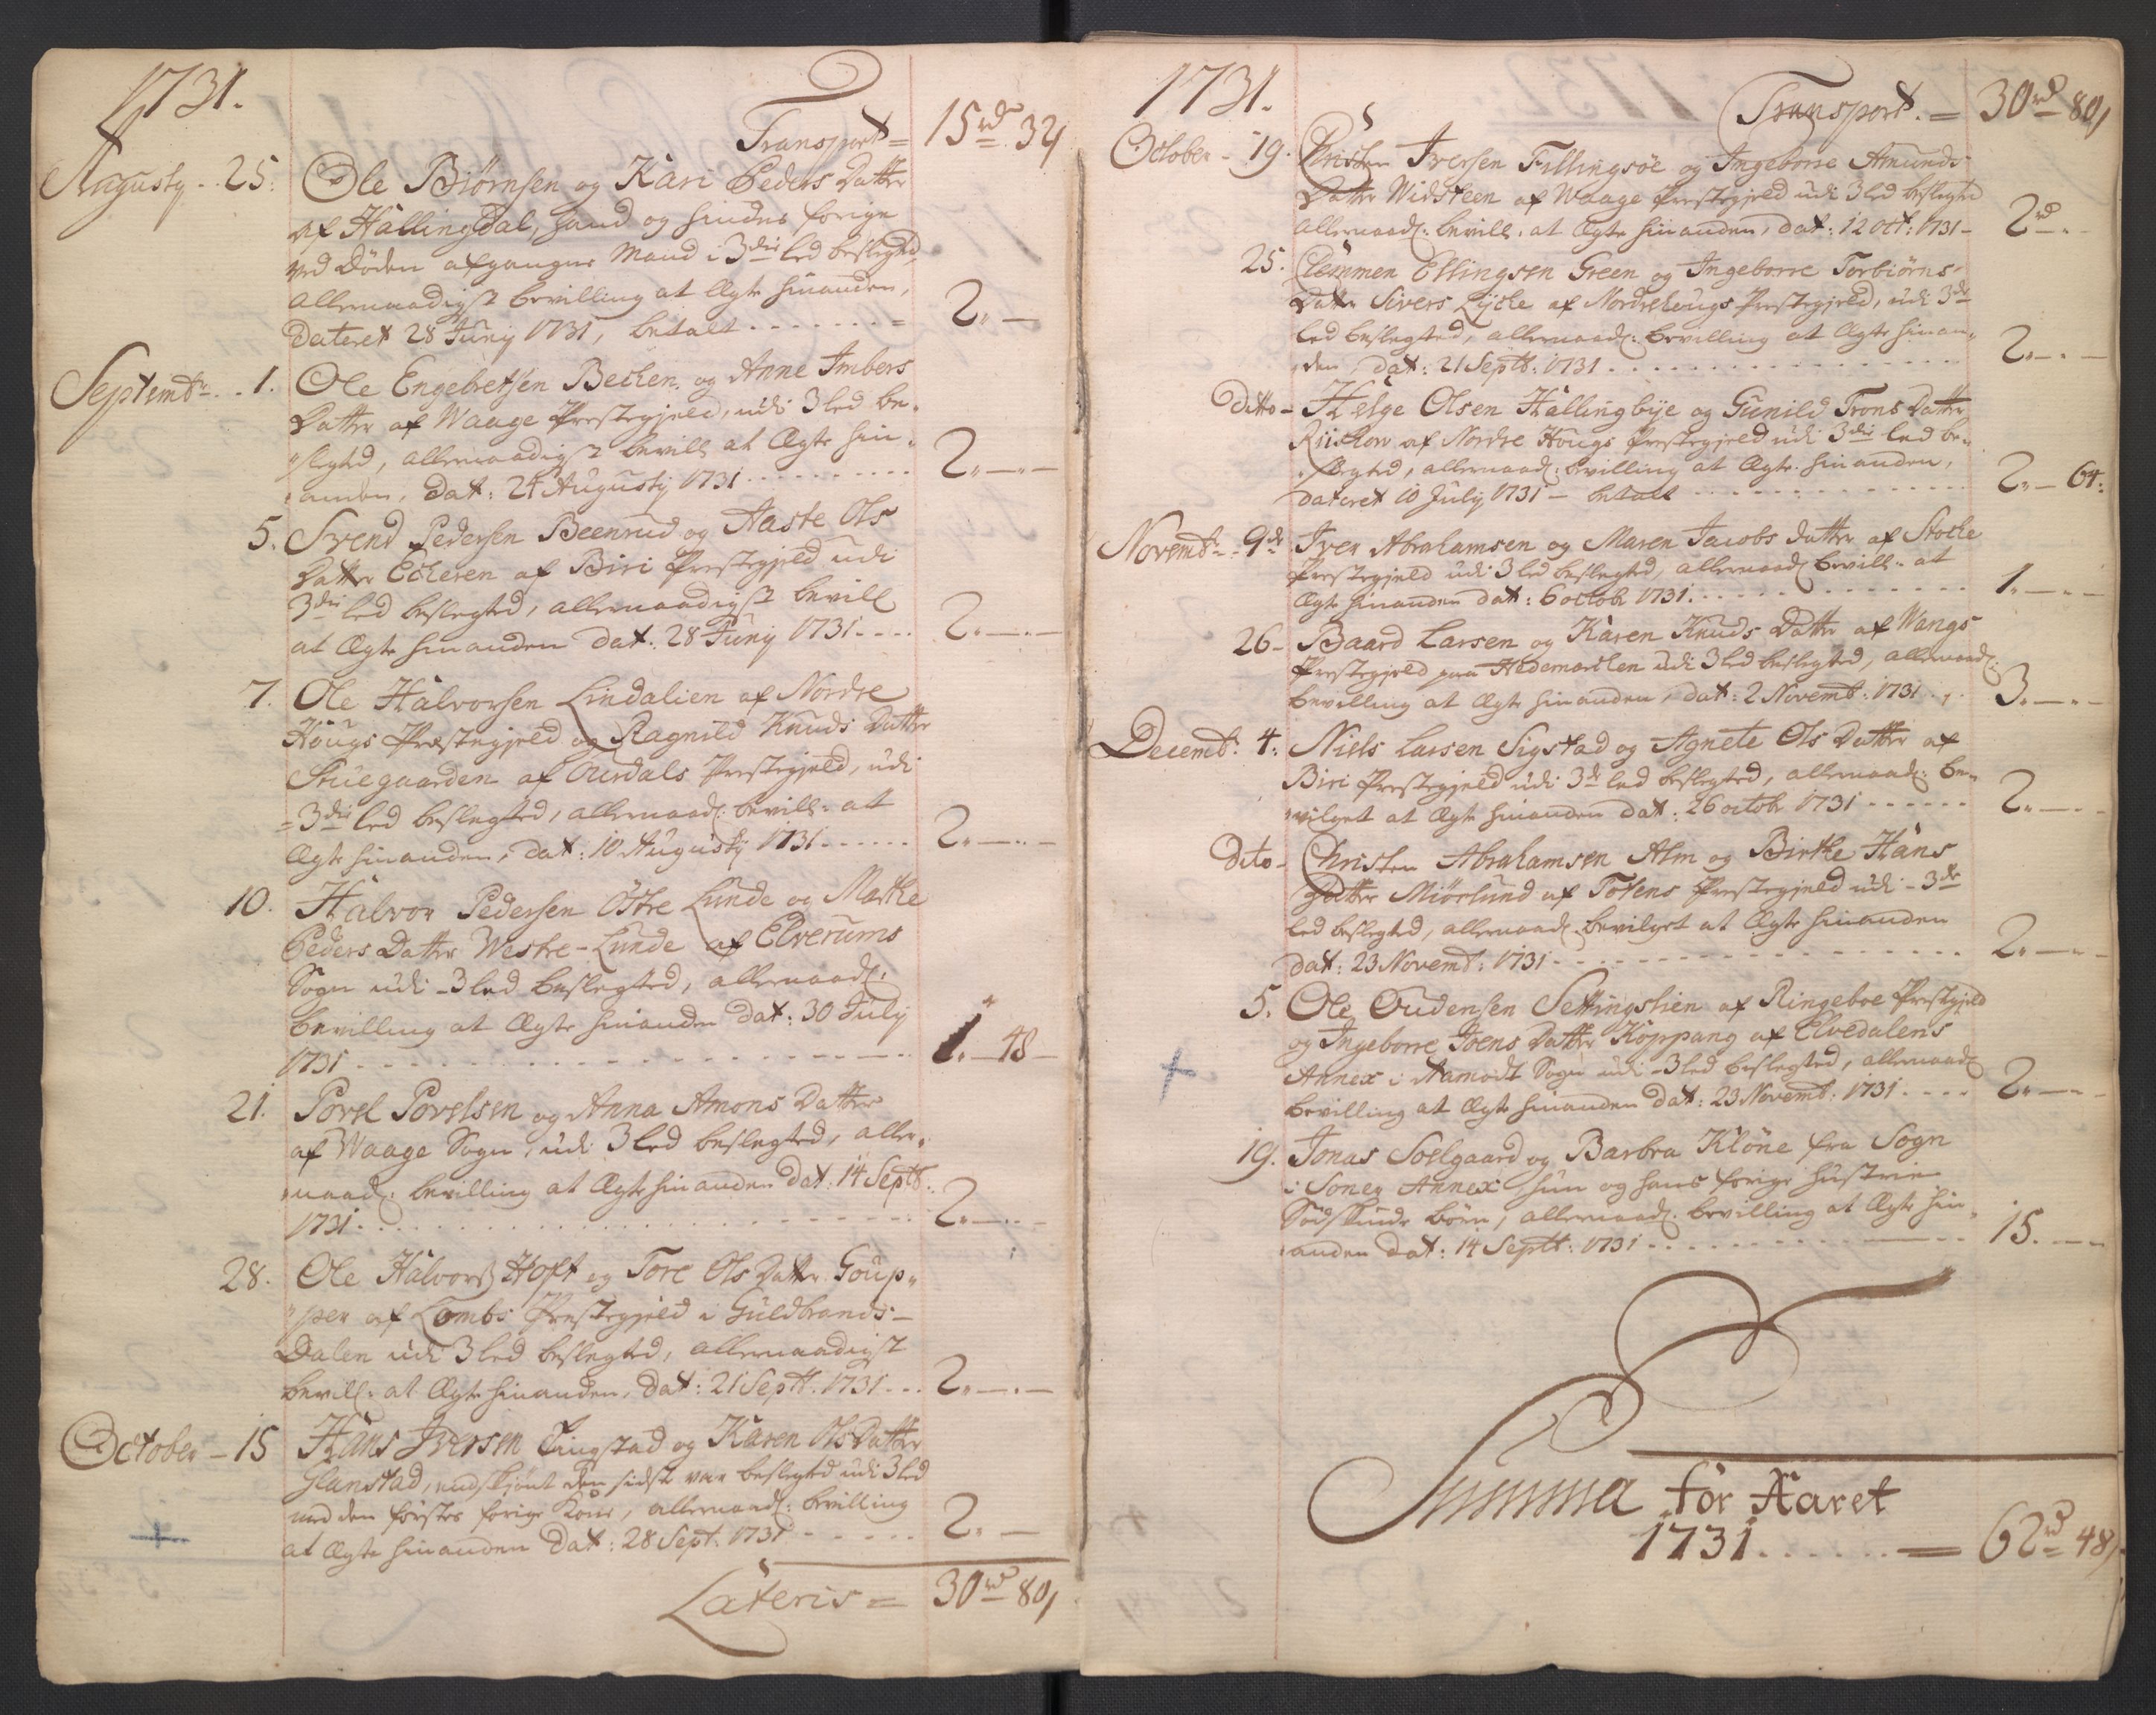 1731.
Transport = 15 rd 32
Augusty - 25. Ole Biørnsen og Kari Peders Datter
af Hallingdal, hand og hindes forige
ved Døden afgangne Mand i 3die led beslegted
allernaadigst bevilling at Ægte hinanden,
dateret 28 Juny 1731, betalt - - - = 2. —
Septembr. - 1. Ole Engebretsen Becken og Anne Imbers
Datter af Waage Præstegjeld, udi 3 led be-
slegted, allernaadigst bevill at Ægte hin-
anden, dat: 24 Augusty 1731 - - - 2. — . —
5. Svend Pedersen Beenrud og Aaste Ols
Datter Eckeren af Biri Præstegjeld udi
3die led beslegted, allernaadigst bevill
at Ægte hinanden dat: 28 Juny 1731 - - - 2. — . —
7. Ole Halvorsen Lindalien af Nordre
Hougs Præstegjeld og Ragnild Knuds Datter
Stuegaarden af Ourdals Præstegjeld, udi
3die led beslegted, allernaad: bevill: at
Ægte hinanden, dat: 10 Augusty 1731 - - - 2. — . —
10. Halvor Pedersen Østre Lunde og Marthe
Peders Datter Westre-Lunde af Elverums
Sogn udi 3 led beslegted, allernaad:
bevilling at Ægte hinanden dat: 30 July
1731 - - - 1. — 48 —
21. Povel Povelsen og Anna Amons Datter
af Waage Sogn, udi 3 led beslegted, aller-
naad: bevilling at Ægte hinanden dat: 14 Septb.
1731 - - - 2. — . —
28. Ole Halvors Hoft og Tore Ols Datter Goup-
per af Lombs Præstegjeld i Guldbrands-
Dalen udi 3 led beslegted, allernaadigst
bevill: at Ægte hinanden, dat: 21 Sept. 1731 - - - 2. — . —
October - 15 Hans Iversen Tingstad og Karen Ols Datter
Glanstad, endskjønt den sidste var beslegted udi 3 led
med den førstes forige Kone, allernaad: bevilling
at Ægte hinanden dat: 28 Sept. 1731 - - - 2. —
Lateris = 30 rd 80
1731.
Transport. = 30 rd 80
October - 19. Christen Iversen Fillingsøe og Ingeborre Amunds
Datter Widsteen af Waage Præstegjeld udi 3 led beslegted
allernaad: bevill. at Ægte hinanden, dat: 12 Oct: 1731 - 2 rd - . -
25. Clemmen Ellingsen Green og Ingeborre Torbiørns
Datter Sivers Lycke af Nordrehougs Præstegjeld, udi 3de
led beslegted, allernaad: bevilling at Ægte hinan-
den, dat: 21 Septb: 1731 - - - 2. — . —
ditto - Helge Olsen Hallingbye og Gunild Trons Datter
af Nordre Hougs Præstegjeld udi 3die led be-
slegted, allernaad: bevilling at Ægte hinanden,
dateret 10 July 1731 - betalt - - - 2. — 64.
Novembr. - 9de Iver Abrahamsen og Maren Jacobs datter af Stocke
Præstegjeld udi 3 led beslegted, allernaad bevill: at
Ægte hinanden dat: 6 octobr 1731 - - - 1. — . —
26 - Baard Larsen og Karen Knuds Datter af Wangs
Præstegjeld paa Hedemarcken udi 3 led beslegted, allernaad:
bevilling at Ægte hinanden, dat: 2 Novemb: 1731 . . 3. — . —
Decemb: 4. Niels Larsen Sigstad og Agnete Ols Datter af
Biri Præstegjeld udi 3de led beslegted, allernaad: be-
vilget at Ægte hinanden dat: 26 octobr 1731 - - - 2. — . —
Dito - Christen Abrahamsen Alm og Birthe Hans
Datter Miørlund af Totens Præstegjeld udi - 3de
led beslegted, allernaad: bevilget at Ægte hinanden
dat: 23 Novemb: 1731 - - - 2. — . —
5. Ole Oudensen Settingslien af Ringeboe Præstgjeld
og Ingeborre Joens Datter Koppang af Elvedalens
Annex i Aamodt Sogn udi - 3 led beslegted, allernaad
bevilling at Ægte hinanden dat: 23 Novemb: 1731 - - - 2. — . —
19. Jonas Soelgaard og Barbra Kløne fra Sogn
i Soner Annex, hun og hans forige Hustrue
Sødskinde børn, allernaad: bevilling at Ægte hin-
anden dat: 14 Septt: 1731 - - - 15. — . —
Summa for Aaret
1731. . . . . . = 62 rd 48